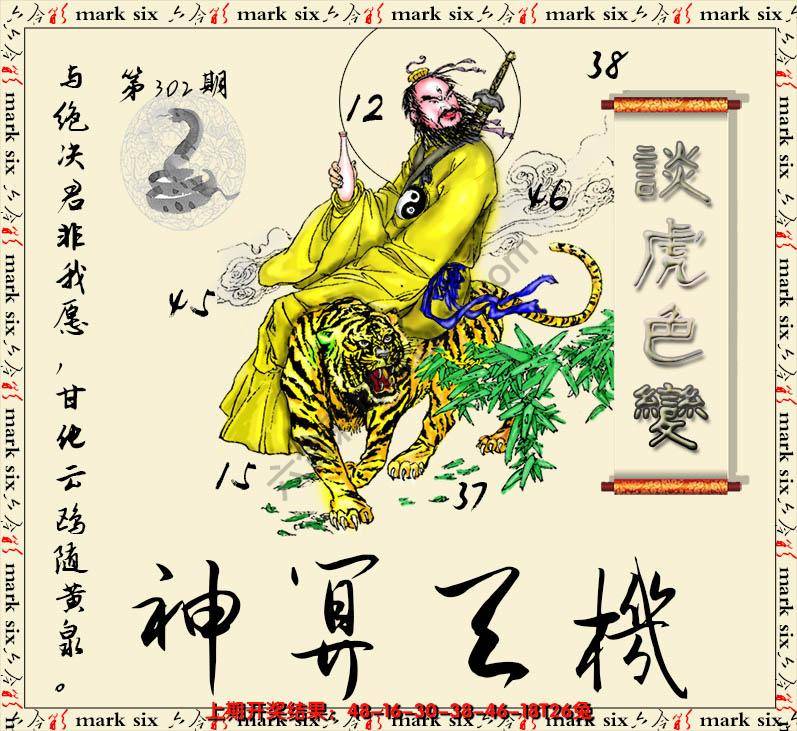 mark six 六合彩 mark six 六合彩 mark six 六合彩 mark six 六合彩 mark six
第302期
与绝决君非我愿，甘化云鸥随黄泉。
38
12
46
45
15
37
談虎色變
神算天機
上期开奖结果：48-16-30-38-46-18T26兔
mark six 六合彩 mark six 六合彩 mark six 六合彩 mark six 六合彩 mark six